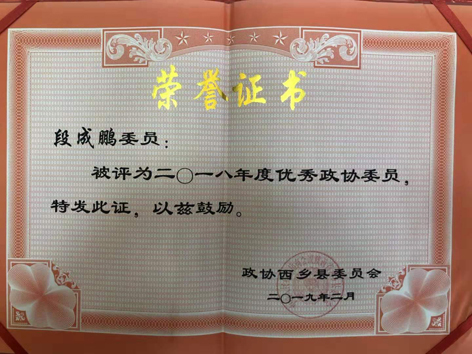 荣誉证书
段成鹏委员：
被评为二〇一八年度优秀政协委员，
特发此证，以兹鼓励。
政协西乡县委员会
二〇一九年二月